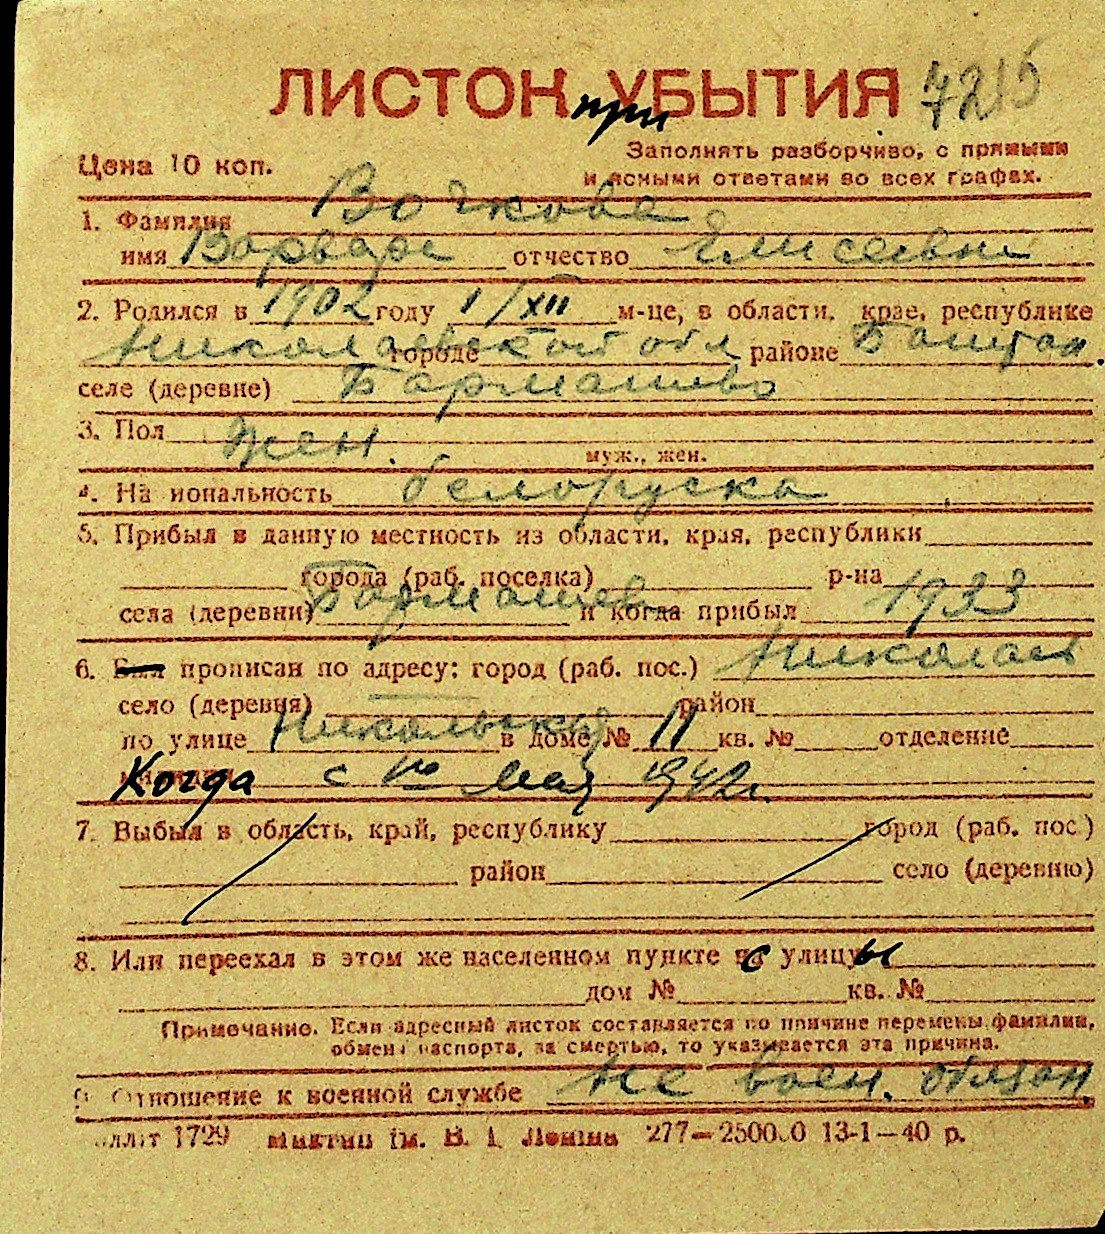 ЛИСТОК УБЫТИЯ 7215
при
Заполнять разборчиво, с прямыми
Цена 10 коп.
и ясными ответами во всех графах.
1. Фамилия Вочкова
имя Варвара отчество Елисеевна
2. Родился в 1902 году 1/XII м-це, в области, крае, республике
Николаевской обл городе районе Баштан.
селе (деревне) Бармашово
3. Пол жен.
муж., жен.
4. На иональность белоруска
5. Прибыл в данную местность из области, края, республики
города (раб. поселка) р-на
села (деревни) Бармашов и когда прибыл 1933
6. Был прописан по адресу: город (раб. пос.) Николаев
село (деревня) район
по улице Никольская в доме № 11 кв. № отделение
милиции Когда с 1го мая 1942г.
7. Выбыл в область, край, республику город (раб. пос)
район село (деревню)
8. Или переехал в этом же населенном пункте с улицы
дом № кв. №
Примечание. Если адресный листок составляется по причине перемены фамилии,
обмена паспорта, за смертью, то указывается эта причина.
9. Отношение к военной службе не воен. обязан.
1729 ім. В. І. Леніна 277—2500 0 13-1—40 р.